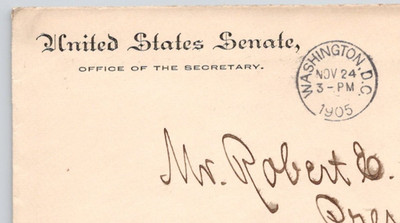 United States Senate,
OFFICE OF THE SECRETARY.
WASHINGTON, D.C.
NOV 24
3-PM
1905
Mr. Robert E.
Pres